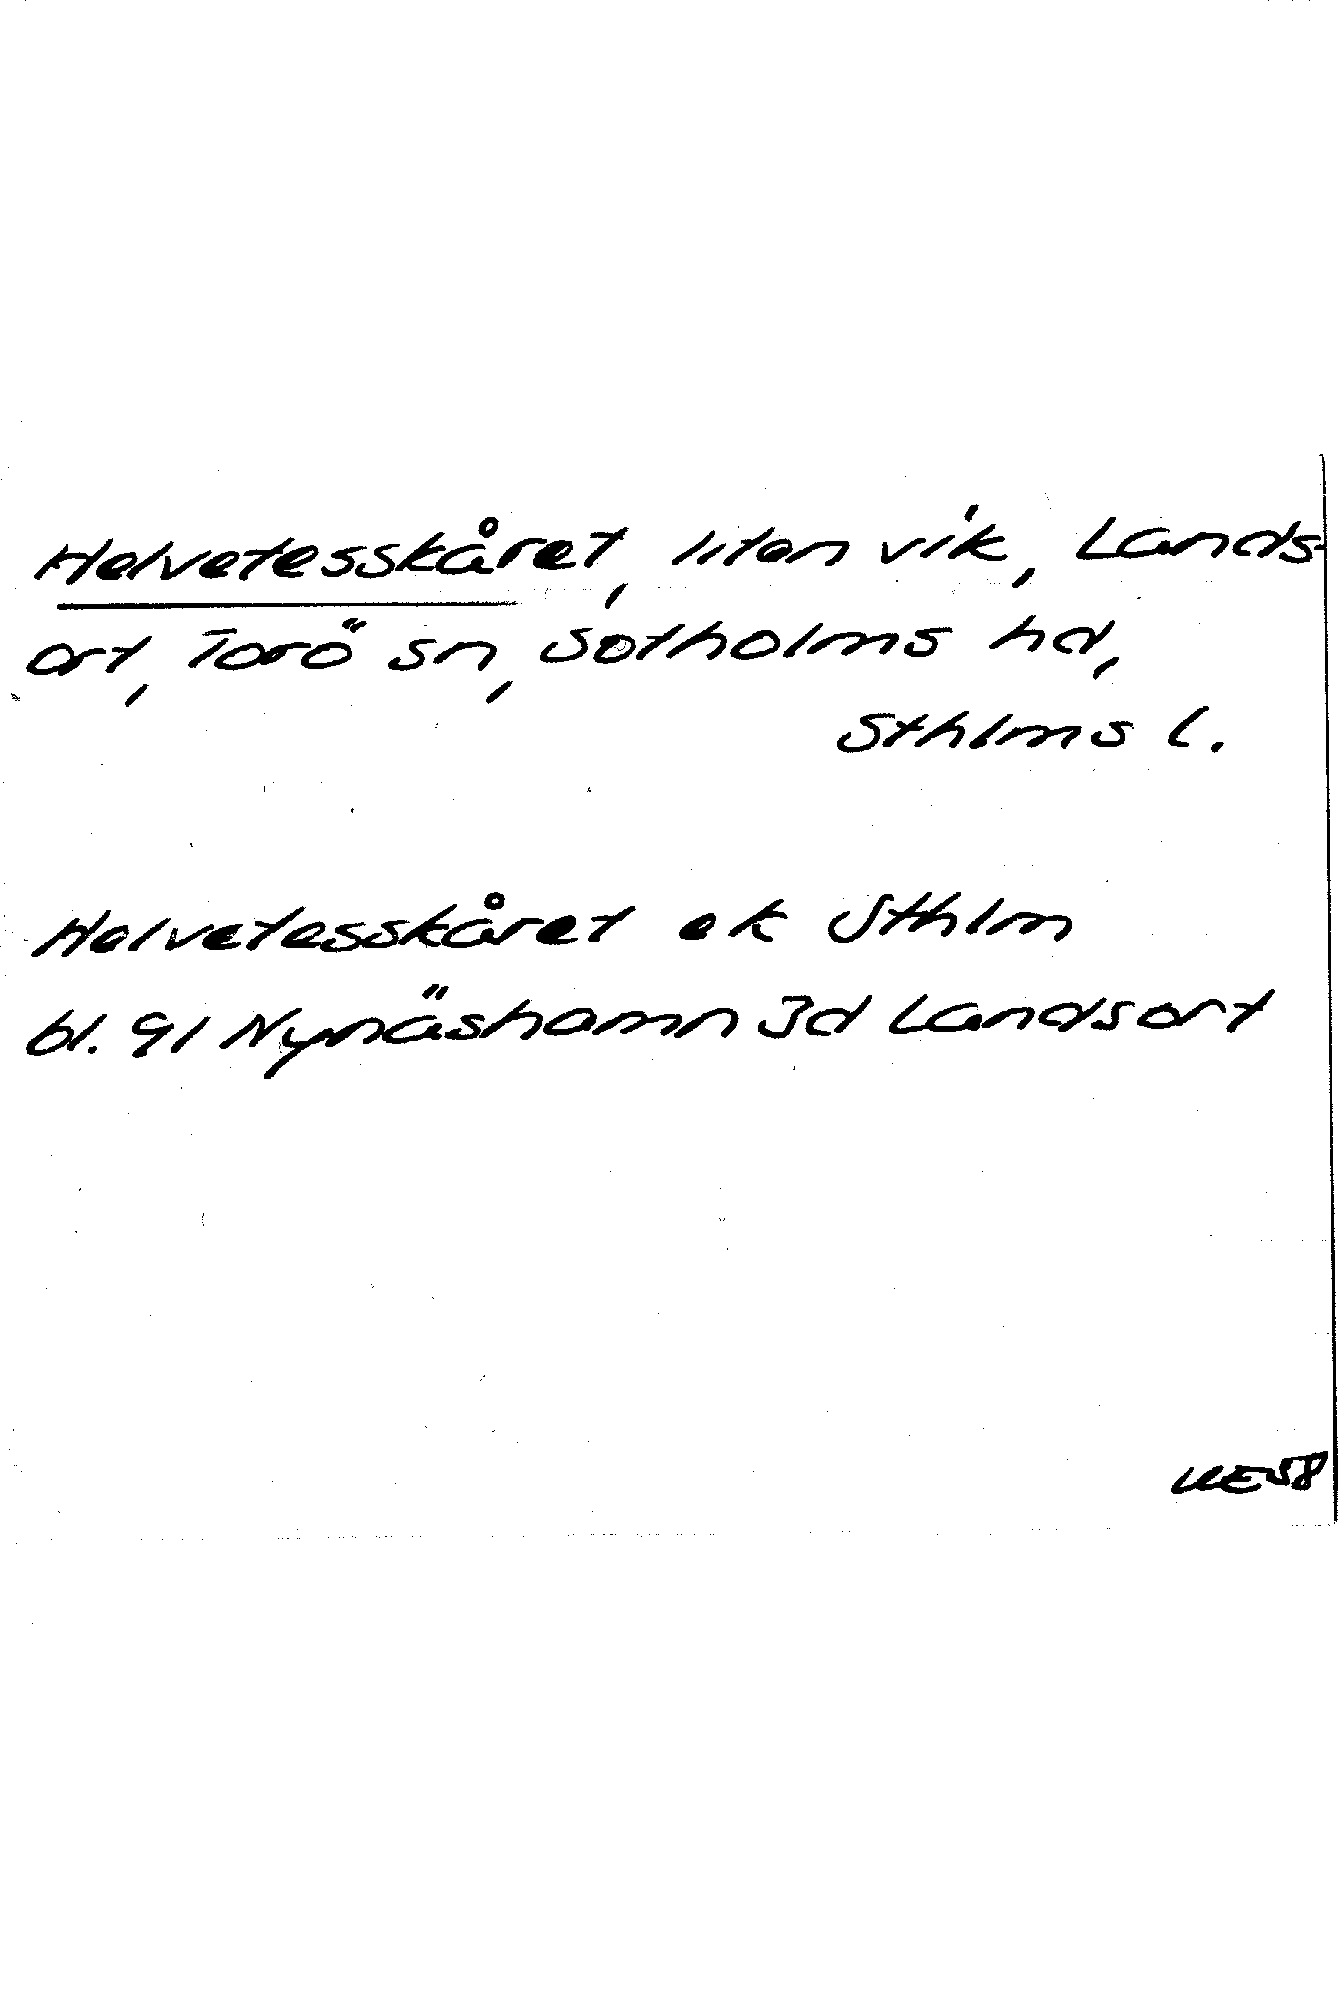 Helvetesskåret, liten vik, Lands-
ort, Torö sn, Sotholms hd,
Sthlms l.
Helvetesskåret ek Sthlm
bl. 91 Nynäshamn 3d Landsort